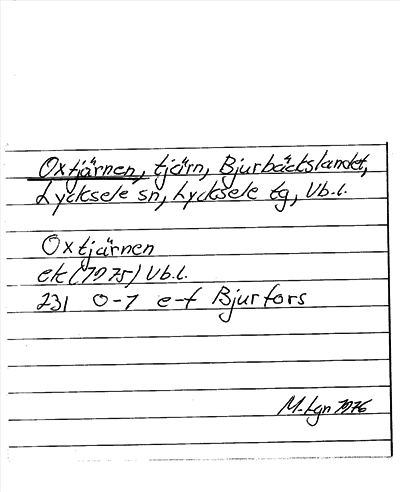 Oxtjärnen, tjärn, Bjurbäckslandet,
Lycksele sn, Lycksele tg, Vb.l.
Oxtjärnen
ek (1975) Vb.l.
231 0-1 e-f Bjurfors
M. Lgn 1976